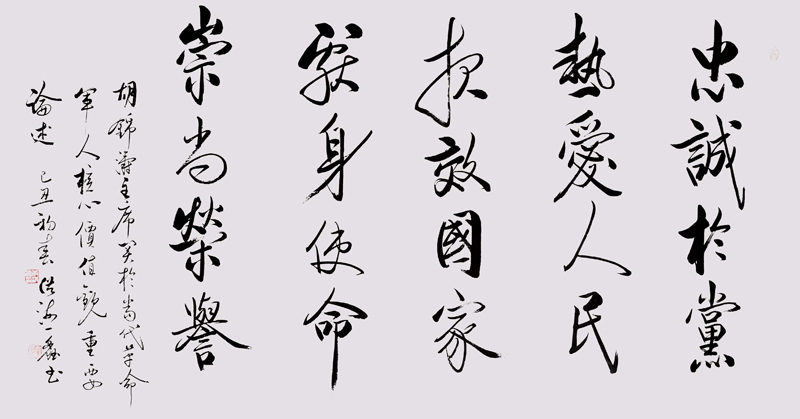 忠誠於黨
熱愛人民
报效國家
献身使命
崇尚榮譽
胡錦濤主席关於當代革命
军人核心價值觀重要
论述 己丑初春洪海